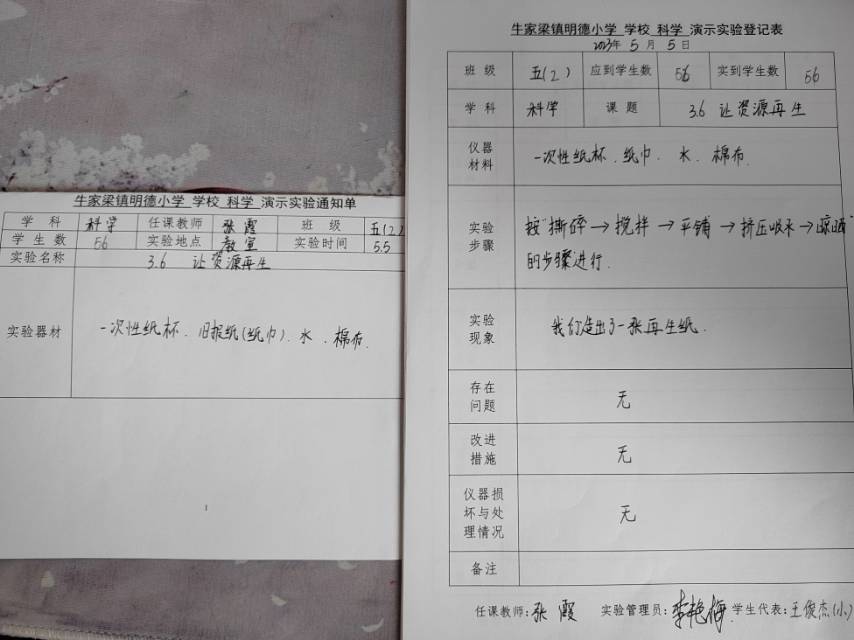 牛家梁镇明德小学 学校 科学 演示实验通知单
学 科 科学 任课教师 张霞 班 级 五(2)
学 生 数 56 实验地点 教室 实验时间 5.5
实验名称 3.6 让资源再生
实验器材 一次性纸杯、旧报纸(纸巾)、水、棉布.
牛家梁镇明德小学 学校 科学 演示实验登记表
2023年 5 月 5 日
班 级 五(2) 应到学生数 56 实到学生数 56
学 科 科学 课 题 3.6 让资源再生
仪器
材料
一次性纸杯、纸巾、水、棉布.
实验
步骤
按"撕碎→搅拌→平铺→挤压吸水→晾晒"
的步骤进行.
实验
现象
我们造出了一张再生纸.
存在
问题
无
改进
措施
无
仪器损
坏与处
理情况
无
备注
任课教师:张霞 实验管理员:李艳梅 学生代表:王俊杰(小)